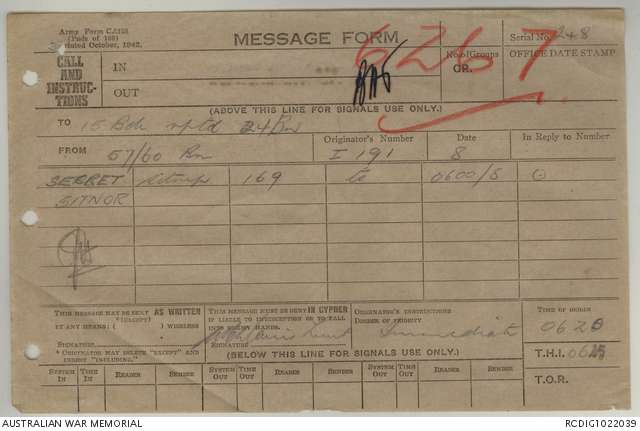 Army Form C.2128
(Pads of 100)
Printed October, 1942.
MESSAGE FORM
Serial No. 248
6267
CALL AND INSTRUCTIONS
IN
OUT
No. of Groups
GR.
OFFICE DATE STAMP
(ABOVE THIS LINE FOR SIGNALS USE ONLY.)
TO 15 Bde rptd 24 Bn
FROM 57/60 Bn
Originator's Number
I 191
Date
8
In Reply to Number
SECRET Sitrep 169 to 0600/8
SITNOR
THIS MESSAGE MAY BE SENT AS WRITTEN
* (EXCEPT)
BY ANY MEANS: ( ) WIRELESS
SIGNATURE
* ORIGINATOR MAY DELETE "EXCEPT" AND INSERT "INCLUDING."
THIS MESSAGE MUST BE SENT IN CYPHER
IF LIABLE TO INTERCEPTION OR TO FALL INTO ENEMY HANDS.
SIGNATURE
ORIGINATOR'S INSTRUCTIONS
DEGREE OF PRIORITY
Immediate
TIME OF ORIGIN
0620
T.H.I. 0625
T.O.R.
(BELOW THIS LINE FOR SIGNALS USE ONLY.)
SYSTEM IN TIME IN READER SENDER SYSTEM OUT TIME OUT READER SENDER SYSTEM OUT TIME OUT READER SENDER
AUSTRALIAN WAR MEMORIAL
RCDIG1022039